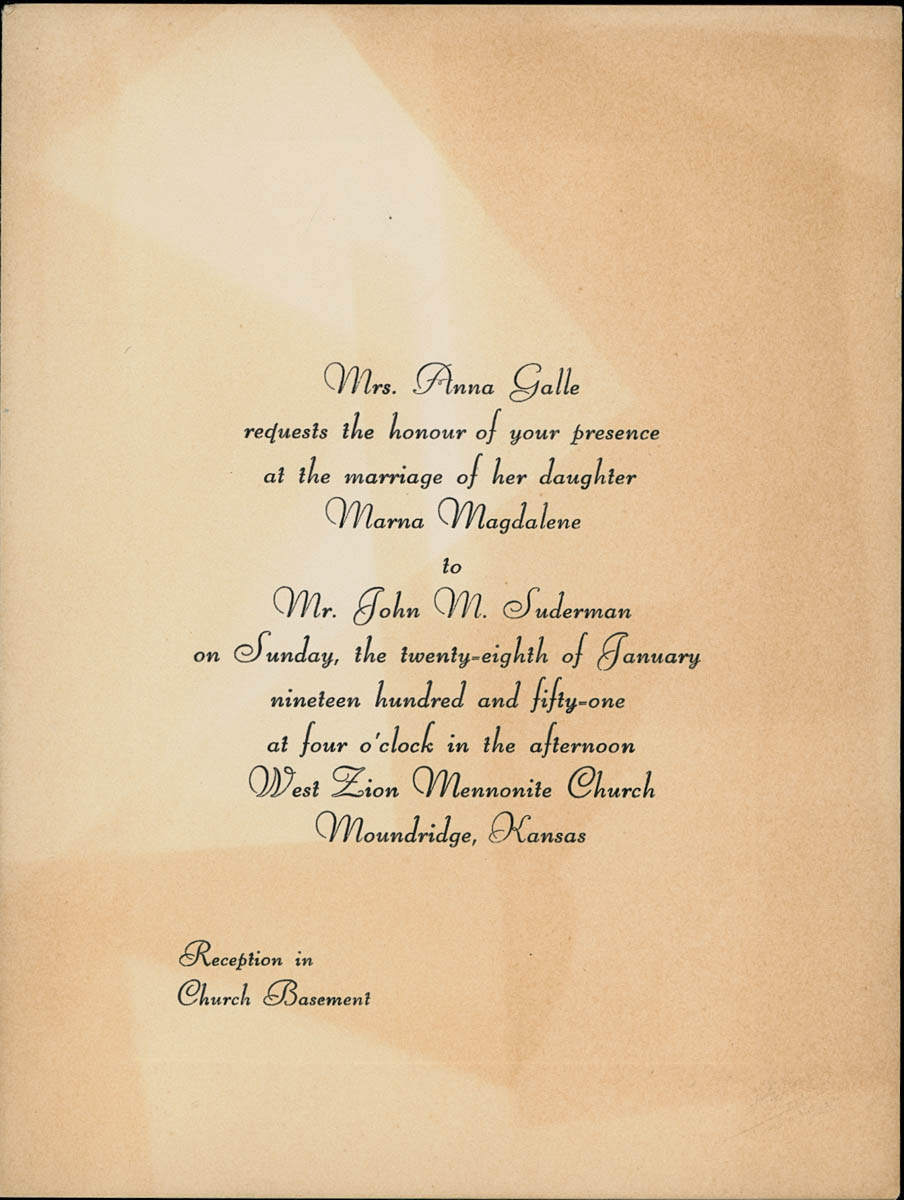 Mrs. Anna Galle
requests the honour of your presence
at the marriage of her daughter
Marna Magdalene
to
Mr. John M. Suderman
on Sunday, the twenty-eighth of January
nineteen hundred and fifty-one
at four o'clock in the afternoon
West Zion Mennonite Church
Moundridge, Kansas
Reception in
Church Basement